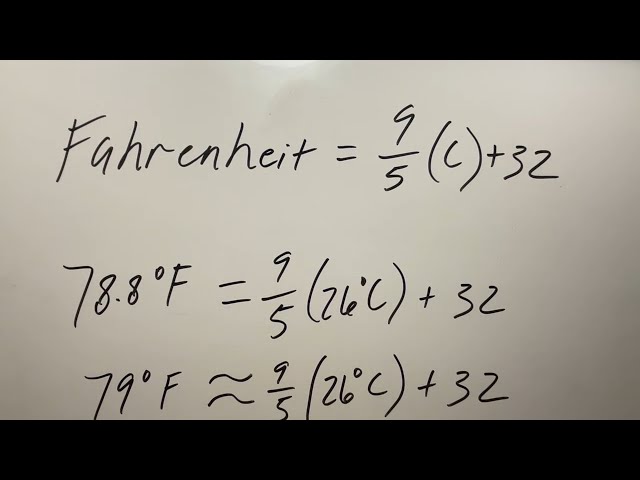 Fahrenheit = 9/5 (C) + 32
78.8°F = 9/5 (26°C) + 32
79°F ≈ 9/5 (26°C) + 32